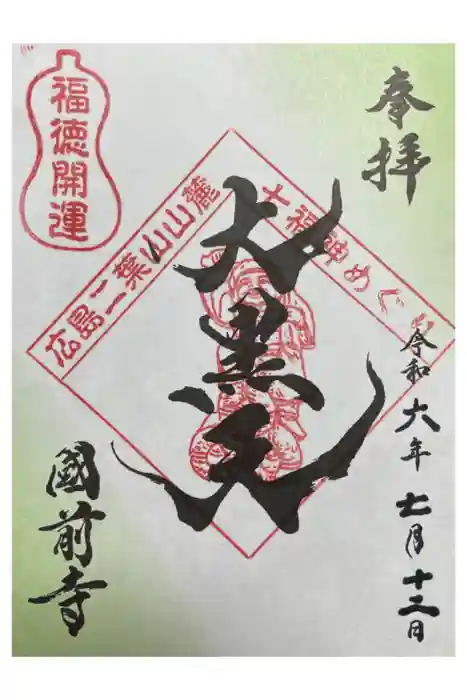 奉拝
福徳開運
広島二葉山山麓
七福神めぐり
大黒天
令和六年七月十二日
國前寺